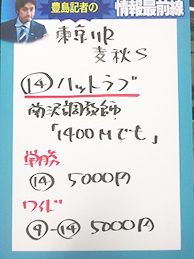 豊島記者の
情報最前線
東京11R
麦秋S
⑭ハットラブ
南沢調教師
「1400Mでも」
単勝
⑭ 5000円
ワイド
⑨-⑭ 5000円